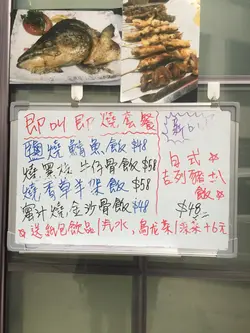 即叫即燒套餐
鹽燒鯖魚飯 $48
燒黑椒牛仔骨飯 $58
燒香草羊架飯 $58
蜜汁燒金沙骨飯 $48
日式
吉列豬扒
飯
$48
送紙包飲品/汽水，烏龍茶/涼茶+6元